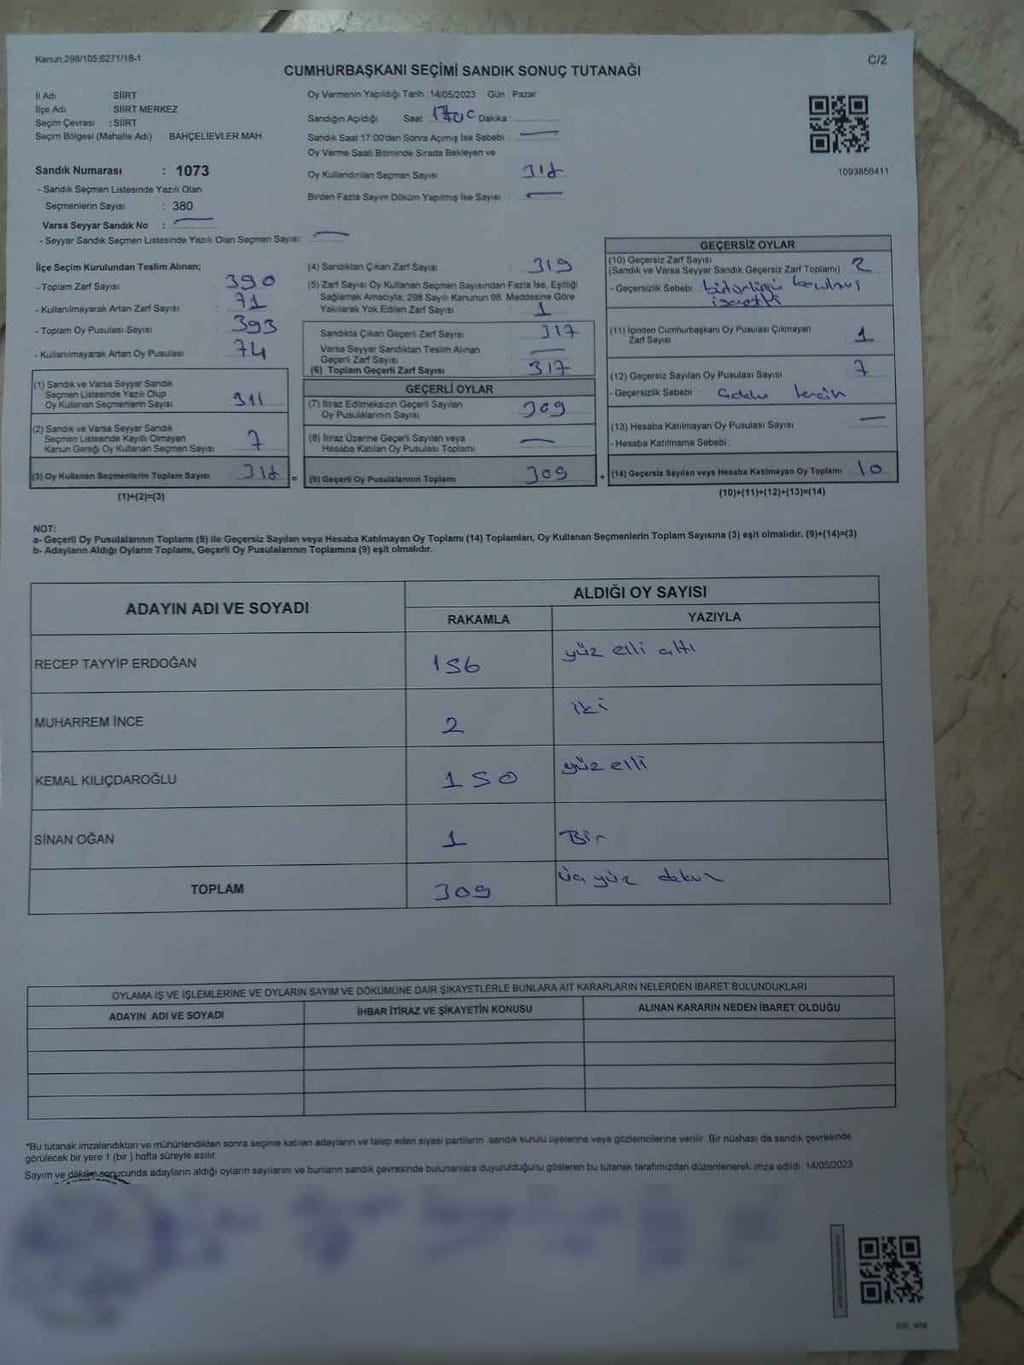 Kanun;298/105;6271/18-1
C/2
CUMHURBAŞKANI SEÇİMİ SANDIK SONUÇ TUTANAĞI
İl Adı SİİRT
İlçe Adı SİİRT MERKEZ
Seçim Çevresi : SİİRT
Seçim Bölgesi (Mahalle Adı) : BAHÇELİEVLER MAH.
Sandık Numarası : 1073
- Sandık Seçmen Listesinde Yazılı Olan
Seçmenlerin Sayısı : 380
Varsa Seyyar Sandık No :
- Seyyar Sandık Seçmen Listesinde Yazılı Olan Seçmen Sayısı:
Oy Vermenin Yapıldığı Tarih :14/05/2023 Gün Pazar
Sandığın Açıldığı Saat Dakika :
Sandık Saat 17:00'den Sonra Açımış İse Sebebi :
Oy Verme Saati Bitiminde Sırada Bekleyen ve
Oy Kullandırılan Seçmen Sayısı 318
Birden Fazla Sayım Döküm Yapılmış İse Sayısı :
1093856411
İlçe Seçim Kurulundan Teslim Alınan;
- Toplam Zarf Sayısı : 390
- Kullanılmayarak Artan Zarf Sayısı : 71
- Toplam Oy Pusulası Sayısı : 393
- Kullanılmayarak Artan Oy Pusulası : 74
(1) Sandık ve Varsa Seyyar Sandık
Seçmen Listesinde Yazılı Olup
Oy Kullanan Seçmenlerin Sayısı 311
(2) Sandık ve Varsa Seyyar Sandık
Seçmen Listesinde Kayıtlı Olmayan
Kanun Gereği Oy Kullanan Seçmen Sayısı 7
(3) Oy Kullanan Seçmenlerin Toplam Sayısı 318 =
(1)+(2)=(3)
(4) Sandıktan Çıkan Zarf Sayısı : 319
(5) Zarf Sayısı Oy Kullanan Seçmen Sayısından Fazla İse, Eşitliği
Sağlamak Amacıyla; 298 Sayılı Kanunun 98. Maddesine Göre
Yakılarak Yok Edilen Zarf Sayısı : 1
Sandıkta Çıkan Geçerli Zarf Sayısı 317
Varsa Seyyar Sandıktan Teslim Alınan
Geçerli Zarf Sayısı
(6) Toplam Geçerli Zarf Sayısı 317
GEÇERLİ OYLAR
(7) İtiraz Edilmeksizin Geçerli Sayılan
Oy Pusulalarının Sayısı 309
(8) İtiraz Üzerine Geçerli Sayılan veya
Hesaba Katılan Oy Pusulası Toplamı
(9) Geçerli Oy Pusulalarının Toplamı 309 +
GEÇERSİZ OYLAR
(10) Geçersiz Zarf Sayısı
(Sandık ve Varsa Seyyar Sandık Geçersiz Zarf Toplamı) 2
- Geçersizlik Sebebi
(11) İçinden Cumhurbaşkanı Oy Pusulası Çıkmayan
Zarf Sayısı 1
(12) Geçersiz Sayılan Oy Pusulası Sayısı 7
- Geçersizlik Sebebi : Çoklu tercih
(13) Hesaba Katılmayan Oy Pusulası Sayısı
- Hesaba Katılmama Sebebi :
(14) Geçersiz Sayılan veya Hesaba Katılmayan Oy Toplamı 10
(10)+(11)+(12)+(13)=(14)
NOT:
a- Geçerli Oy Pusulalarının Toplamı (9) ile Geçersiz Sayılan veya Hesaba Katılmayan Oy Toplamı (14) Toplamları, Oy Kullanan Seçmenlerin Toplam Sayısına (3) eşit olmalıdır. (9)+(14)=(3)
b- Adayların Aldığı Oyların Toplamı, Geçerli Oy Pusulalarının Toplamına (9) eşit olmalıdır.
ADAYIN ADI VE SOYADI
ALDIĞI OY SAYISI
RAKAMLA YAZIYLA
RECEP TAYYİP ERDOĞAN 156 yüz elli altı
MUHARREM İNCE 2 iki
KEMAL KILIÇDAROĞLU 150 yüz elli
SİNAN OĞAN 1 Bir
TOPLAM 309 üç yüz dokuz
OYLAMA İŞ VE İŞLEMLERİNE VE OYLARIN SAYIM VE DÖKÜMÜNE DAİR ŞİKAYETLERLE BUNLARA AİT KARARLARIN NELERDEN İBARET BULUNDUKLARI
ADAYIN ADI VE SOYADI İHBAR İTİRAZ VE ŞİKAYETİN KONUSU ALINAN KARARIN NEDEN İBARET OLDUĞU
*Bu tutanak imzalandıktan ve mühürlendikten sonra seçime katılan adayların ve talep eden siyasi partilerin sandık kurulu üyelerine veya gözlemcilerine verilir. Bir nüshası da sandık çevresinde
görülecek bir yere 1 (bir ) hafta süreyle asılır.
Sayım ve döküm sonucunda adayların aldığı oyların sayılarını ve bunların sandık çevresinde bulunanlara duyurulduğunu gösteren bu tutanak tarafımızdan düzenlenerek imza edildi. 14/05/2023